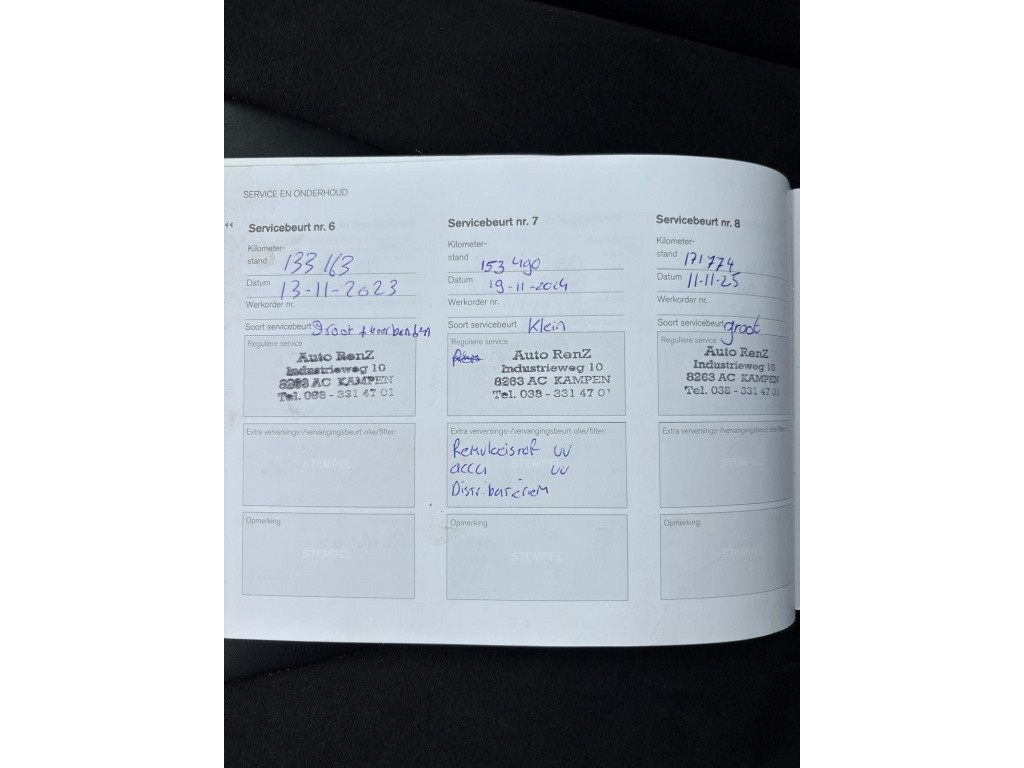 SERVICE EN ONDERHOUD
Servicebeurt nr. 6
Kilometer-
stand 133 163
Datum 13-11-2023
Werkorder nr.
Soort servicebeurt Groot + voorbanden
Reguliere service
Auto RenZ
Industrieweg 10
8263 AC KAMPEN
Tel. 038 - 331 47 01
Extra verversings-/vervangingsbeurt olie/filter:
STEMPEL
Opmerking
STEMPEL
Servicebeurt nr. 7
Kilometer-
stand 153 490
Datum 19-11-2024
Werkorder nr.
Soort servicebeurt Klein
Reguliere service
Auto RenZ
Industrieweg 10
8263 AC KAMPEN
Tel. 038 - 331 47 01
Extra verversings-/vervangingsbeurt olie/filter:
Remvloeistof VV
accu VV
Distributieriem
STEMPEL
Opmerking
STEMPEL
Servicebeurt nr. 8
Kilometer-
stand 171 774
Datum 11-11-25
Werkorder nr.
Soort servicebeurt groot
Reguliere service
Auto RenZ
Industrieweg 10
8263 AC KAMPEN
Tel. 038 - 331 47 01
Extra verversings-/vervangingsbeurt olie/filter:
STEMPEL
Opmerking
STEMPEL